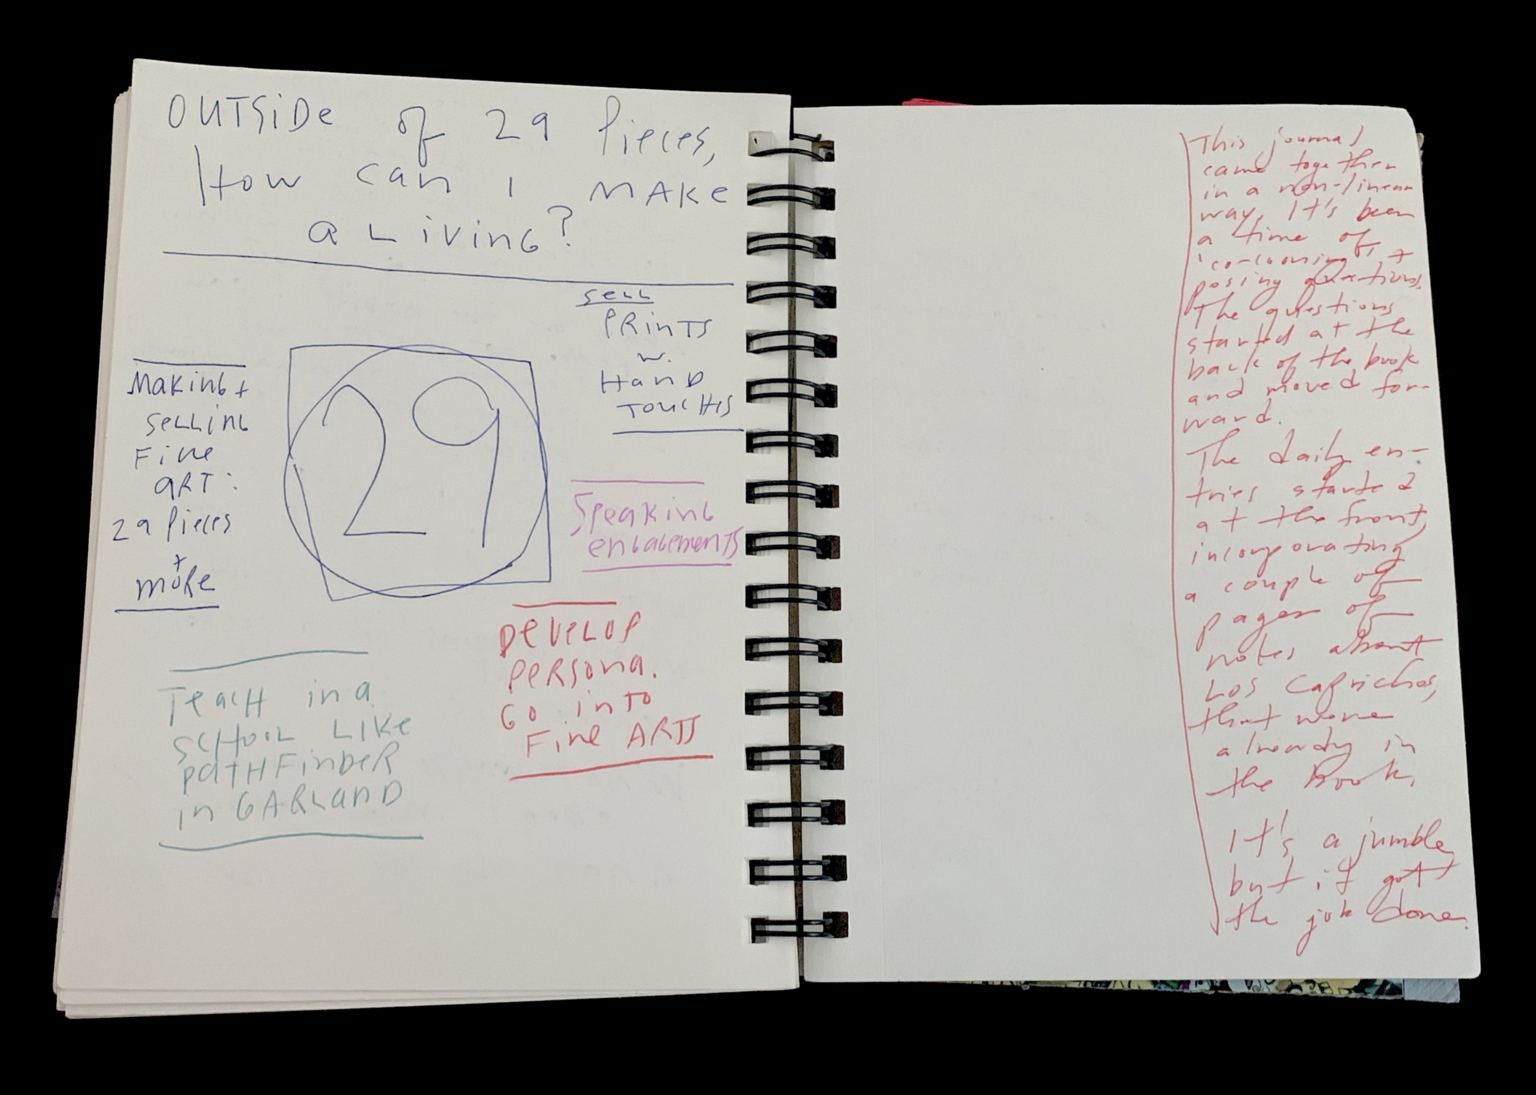 OUTSIDE of 29 Pieces,
How can I MAKE
a Living?
Making +
Selling
Fine
ART:
29 Pieces
+
more
29
Sell
PRINTS
w.
HAND
TOUCHES
Speaking
engagements
DEVELOP
PERSONA.
GO INTO
Fine ARTS
Teach in a
SCHOOL LIKE
PATHFINDER
in GARLAND
This journal
came together
in a non-linear
way. It's been
a time of
+
posing questions.
The questions
started at the
back of the book
and moved for-
ward.
The daily en-
tries started
at the front,
incorporating
a couple of
pages of
notes about
Los Caprichos,
that were
already in
the book.
It's a jumble,
but it got
the job done.